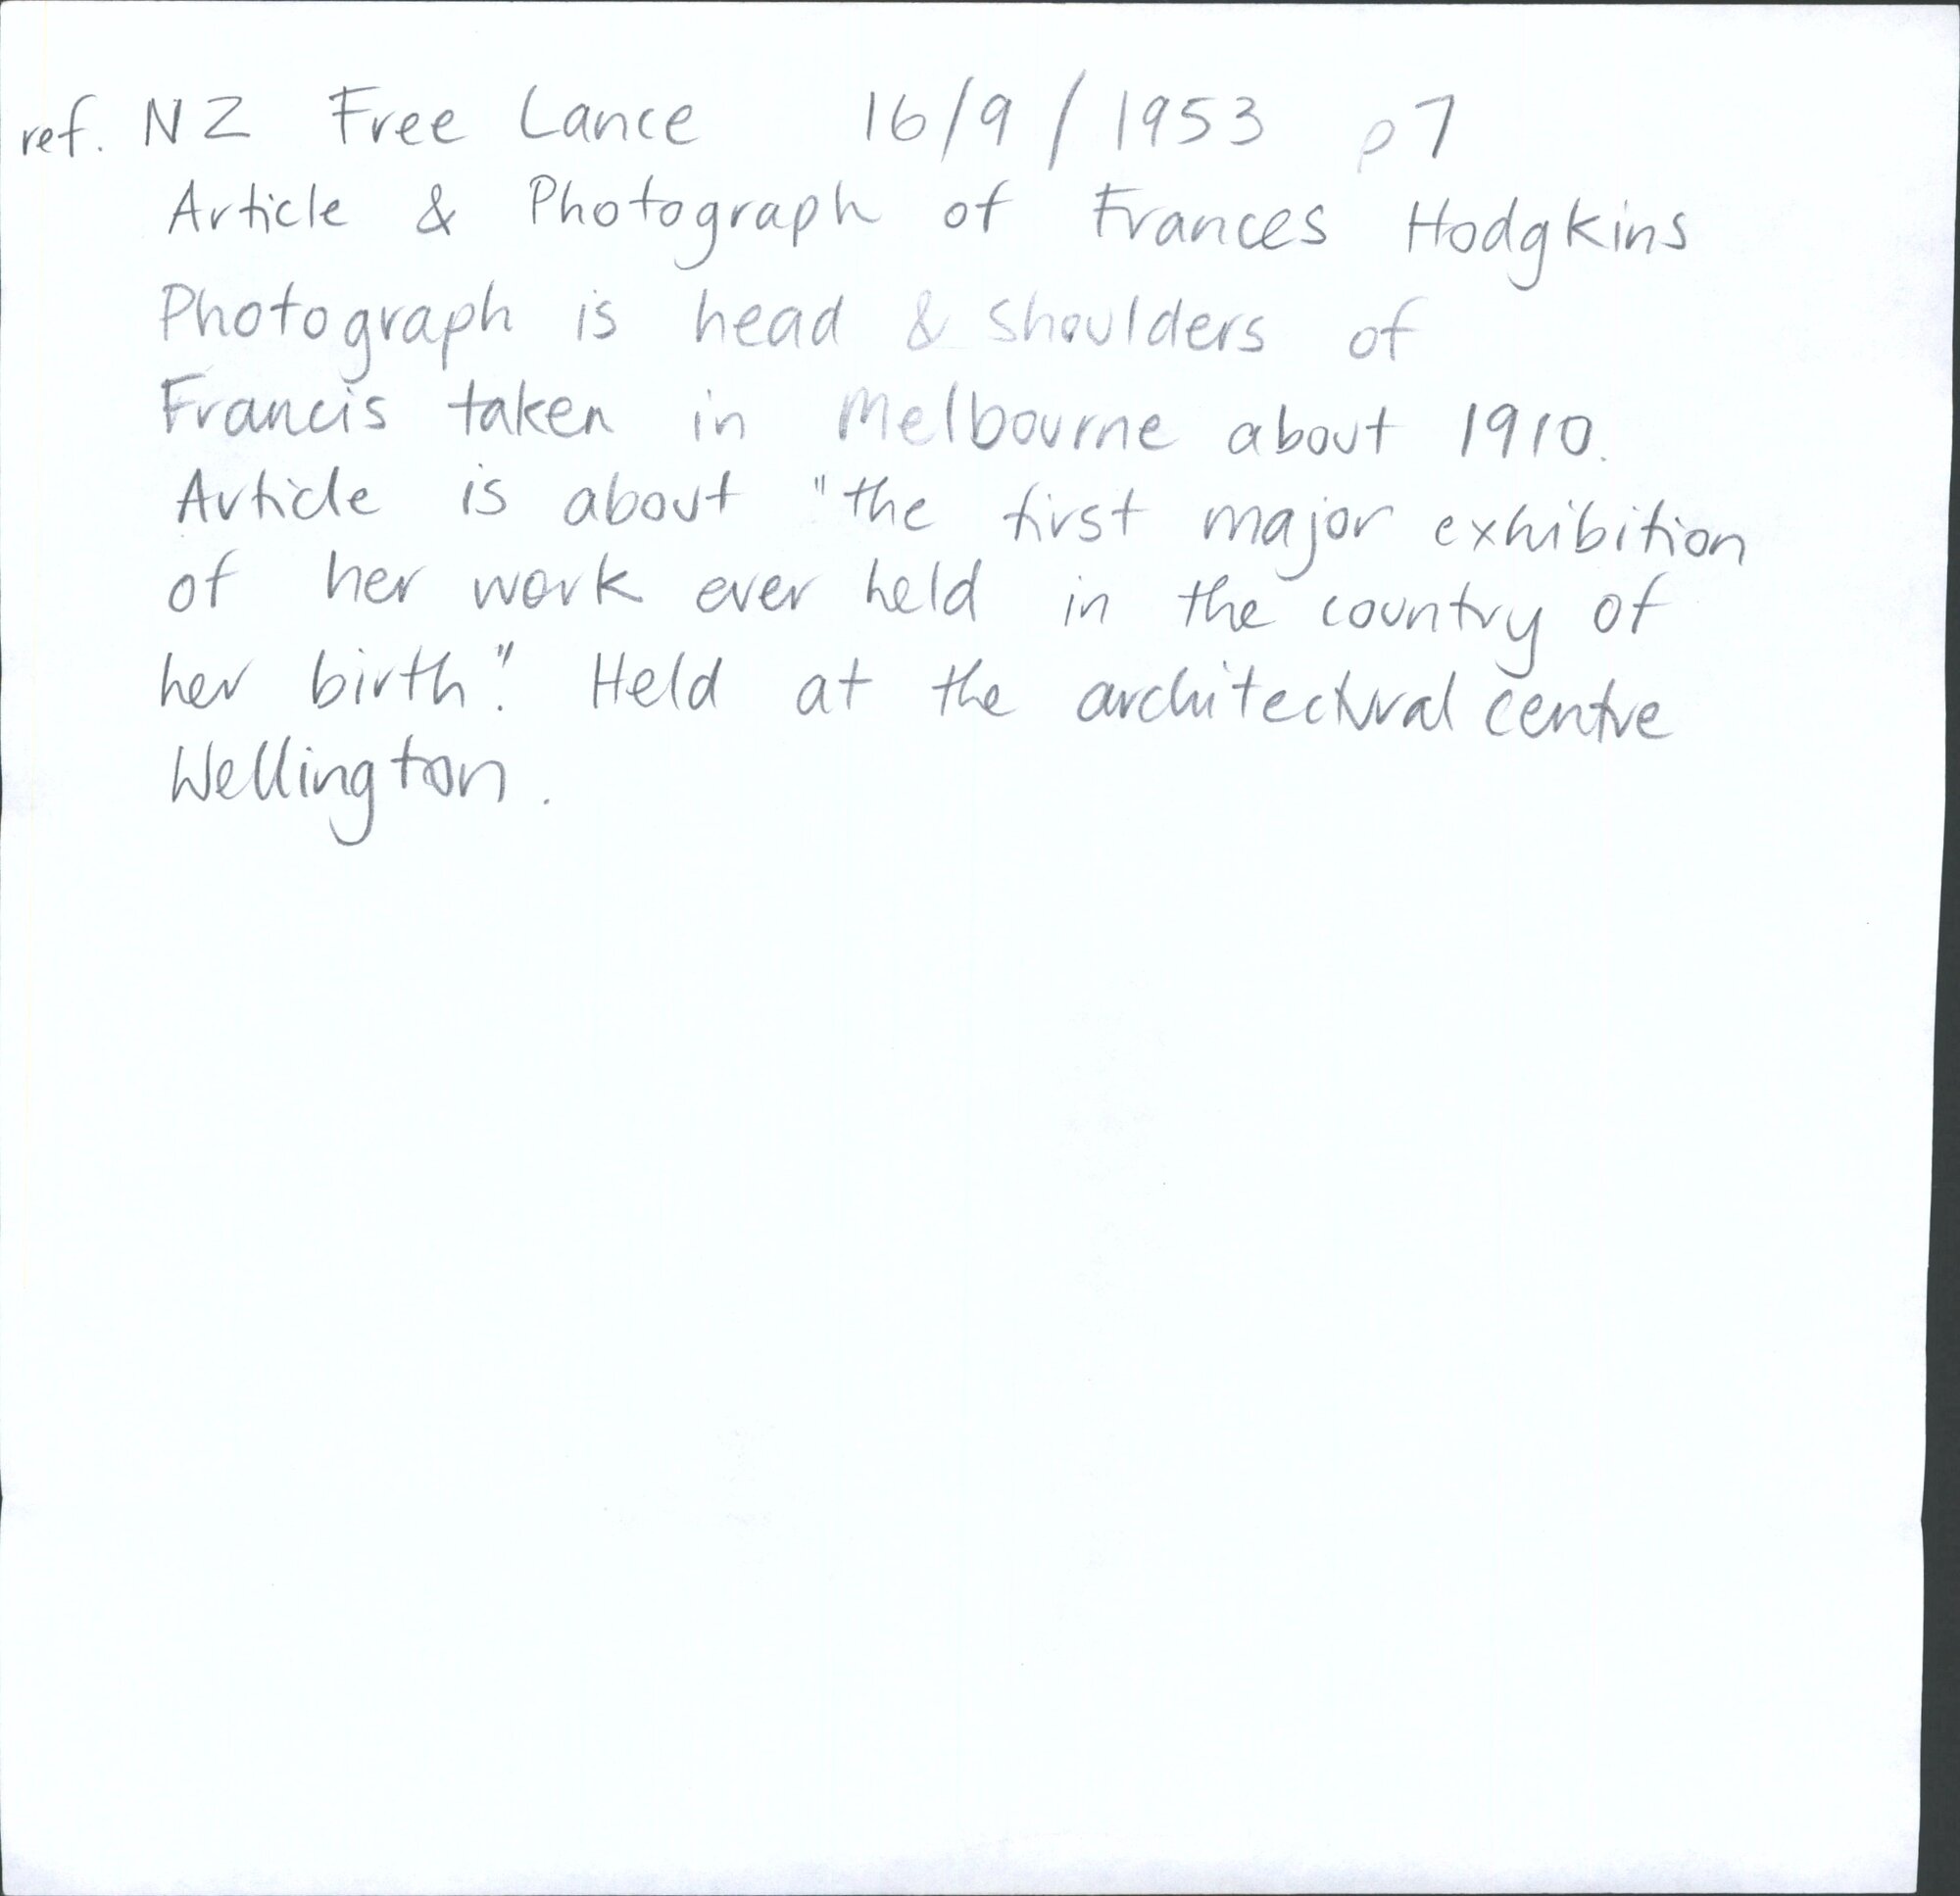 ref. NZ Free Lance 16/9/1953 p7
Article & Photograph of Frances Hodgkins
Photograph is head & shoulders of
Francis taken in Melbourne about 1910.
Article is about "the first major exhibition
of her work ever held in the country of
her birth". Held at the architectural centre
Wellington.